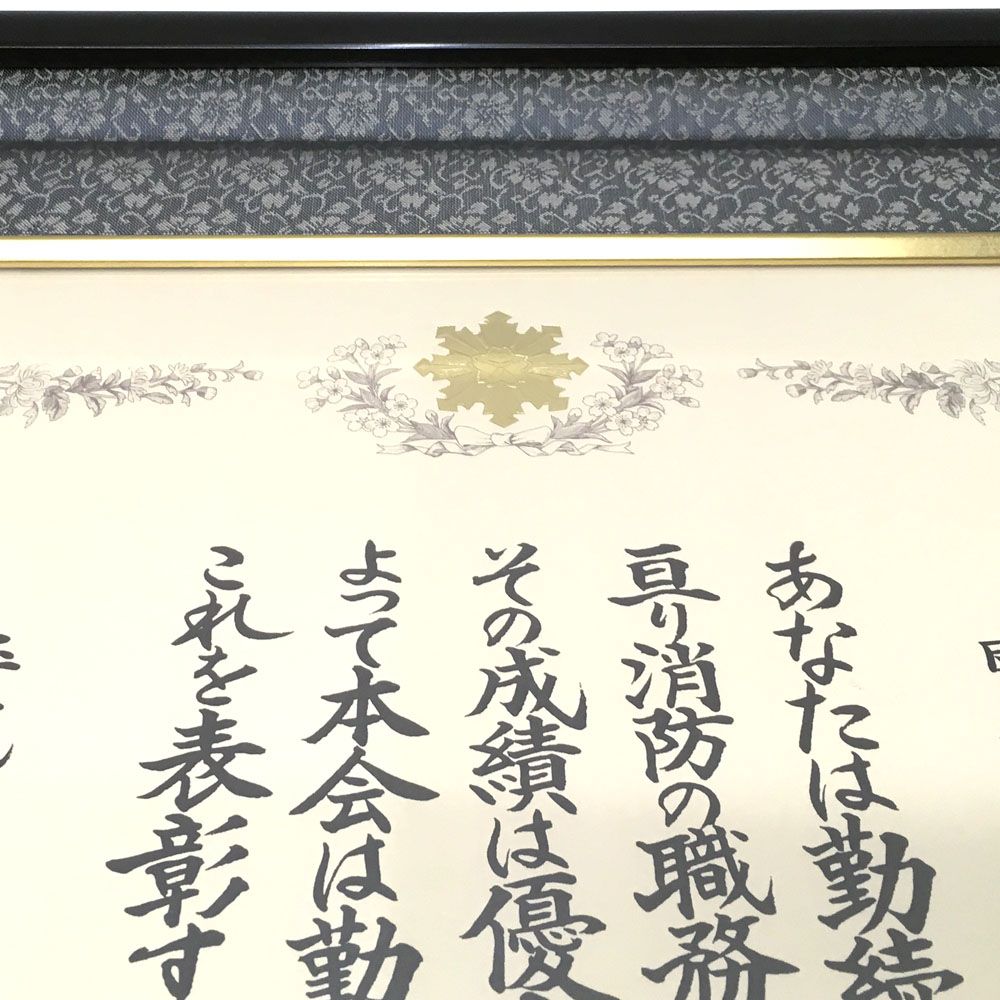 あなたは勤続
亘り消防の職務
その成績は優
よって本会は勤
これを表彰す